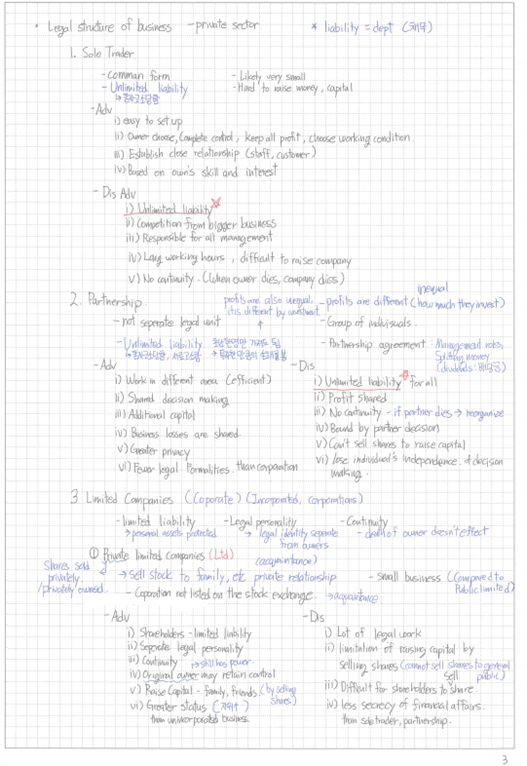 • Legal structure of business - private sector * liability = dept (채무)
1. Sole Trader
- Comman form - Likely very small
- Unlimited liability - Hard to raise money, capital
- Adv
i) easy to set up
ii) Owner choose, Complete control, keep all profit, choose working condition.
iii) Establish close relationship (staff, customer)
iv) Based on own's skill and interest
- Dis Adv
i) Unlimited liability
ii) Competition from bigger business
iii) Responsible for all management
iv) Long working hours, difficult to raise company
v) No continuity. (When owner dies, company dies)
2. Partnership.
inequal
profits are also unequal, - profits are different (how much they invest)
it is different by investment.
- not seperate legal unit - Group of indivisuals.
- Unlimited liability - Partnership agreement : Management roles,
Splitting money
(dividends:
- Adv - Dis
i) Work in different area (efficient) i) Unlimited liability for all
ii) Shared decision making ii) Profit shared
iii) Additional capital iii) No continuity - if partner dies → reorganize
iv) Business losses are shared. iv) Bound by partner decision
v) Greater privacy v) Can't sell shares to raise capital
vi) Fewer legal formalities. than corporation vi) lose individual's independence of decision
making.
3 Limited Companies (Coporate) (Incorporated, corporations)
- limited liability - Legal personality - Continuity
→ personal assets protected → legal identity seperate - death of owner doesn't effect
from owners
① Private limited companies (Ltd) (acqmintance)
Shares sold
privately
/privately owned.
→ sell stock to family, etc private relationship - small business (Compared to
Public limited)
- Coporation not listed on the stock exchange. → acquantance
- Adv - Dis
i) Shareholders - limited liability i) Lot of legal work
ii) Seperate legal personality ii) limitation of raising capital by
iii) Continuity → still has power. selling shares (cannot sell shares to general
iv) Original owner may retain control sell public)
v) Raise Capital - family, friends (by selling iii) Difficult for shareholders to share.
shares)
vi) Greater status iv) less secrecy of financial affairs.
than unincorporated business. than sole trader, partnership.
3